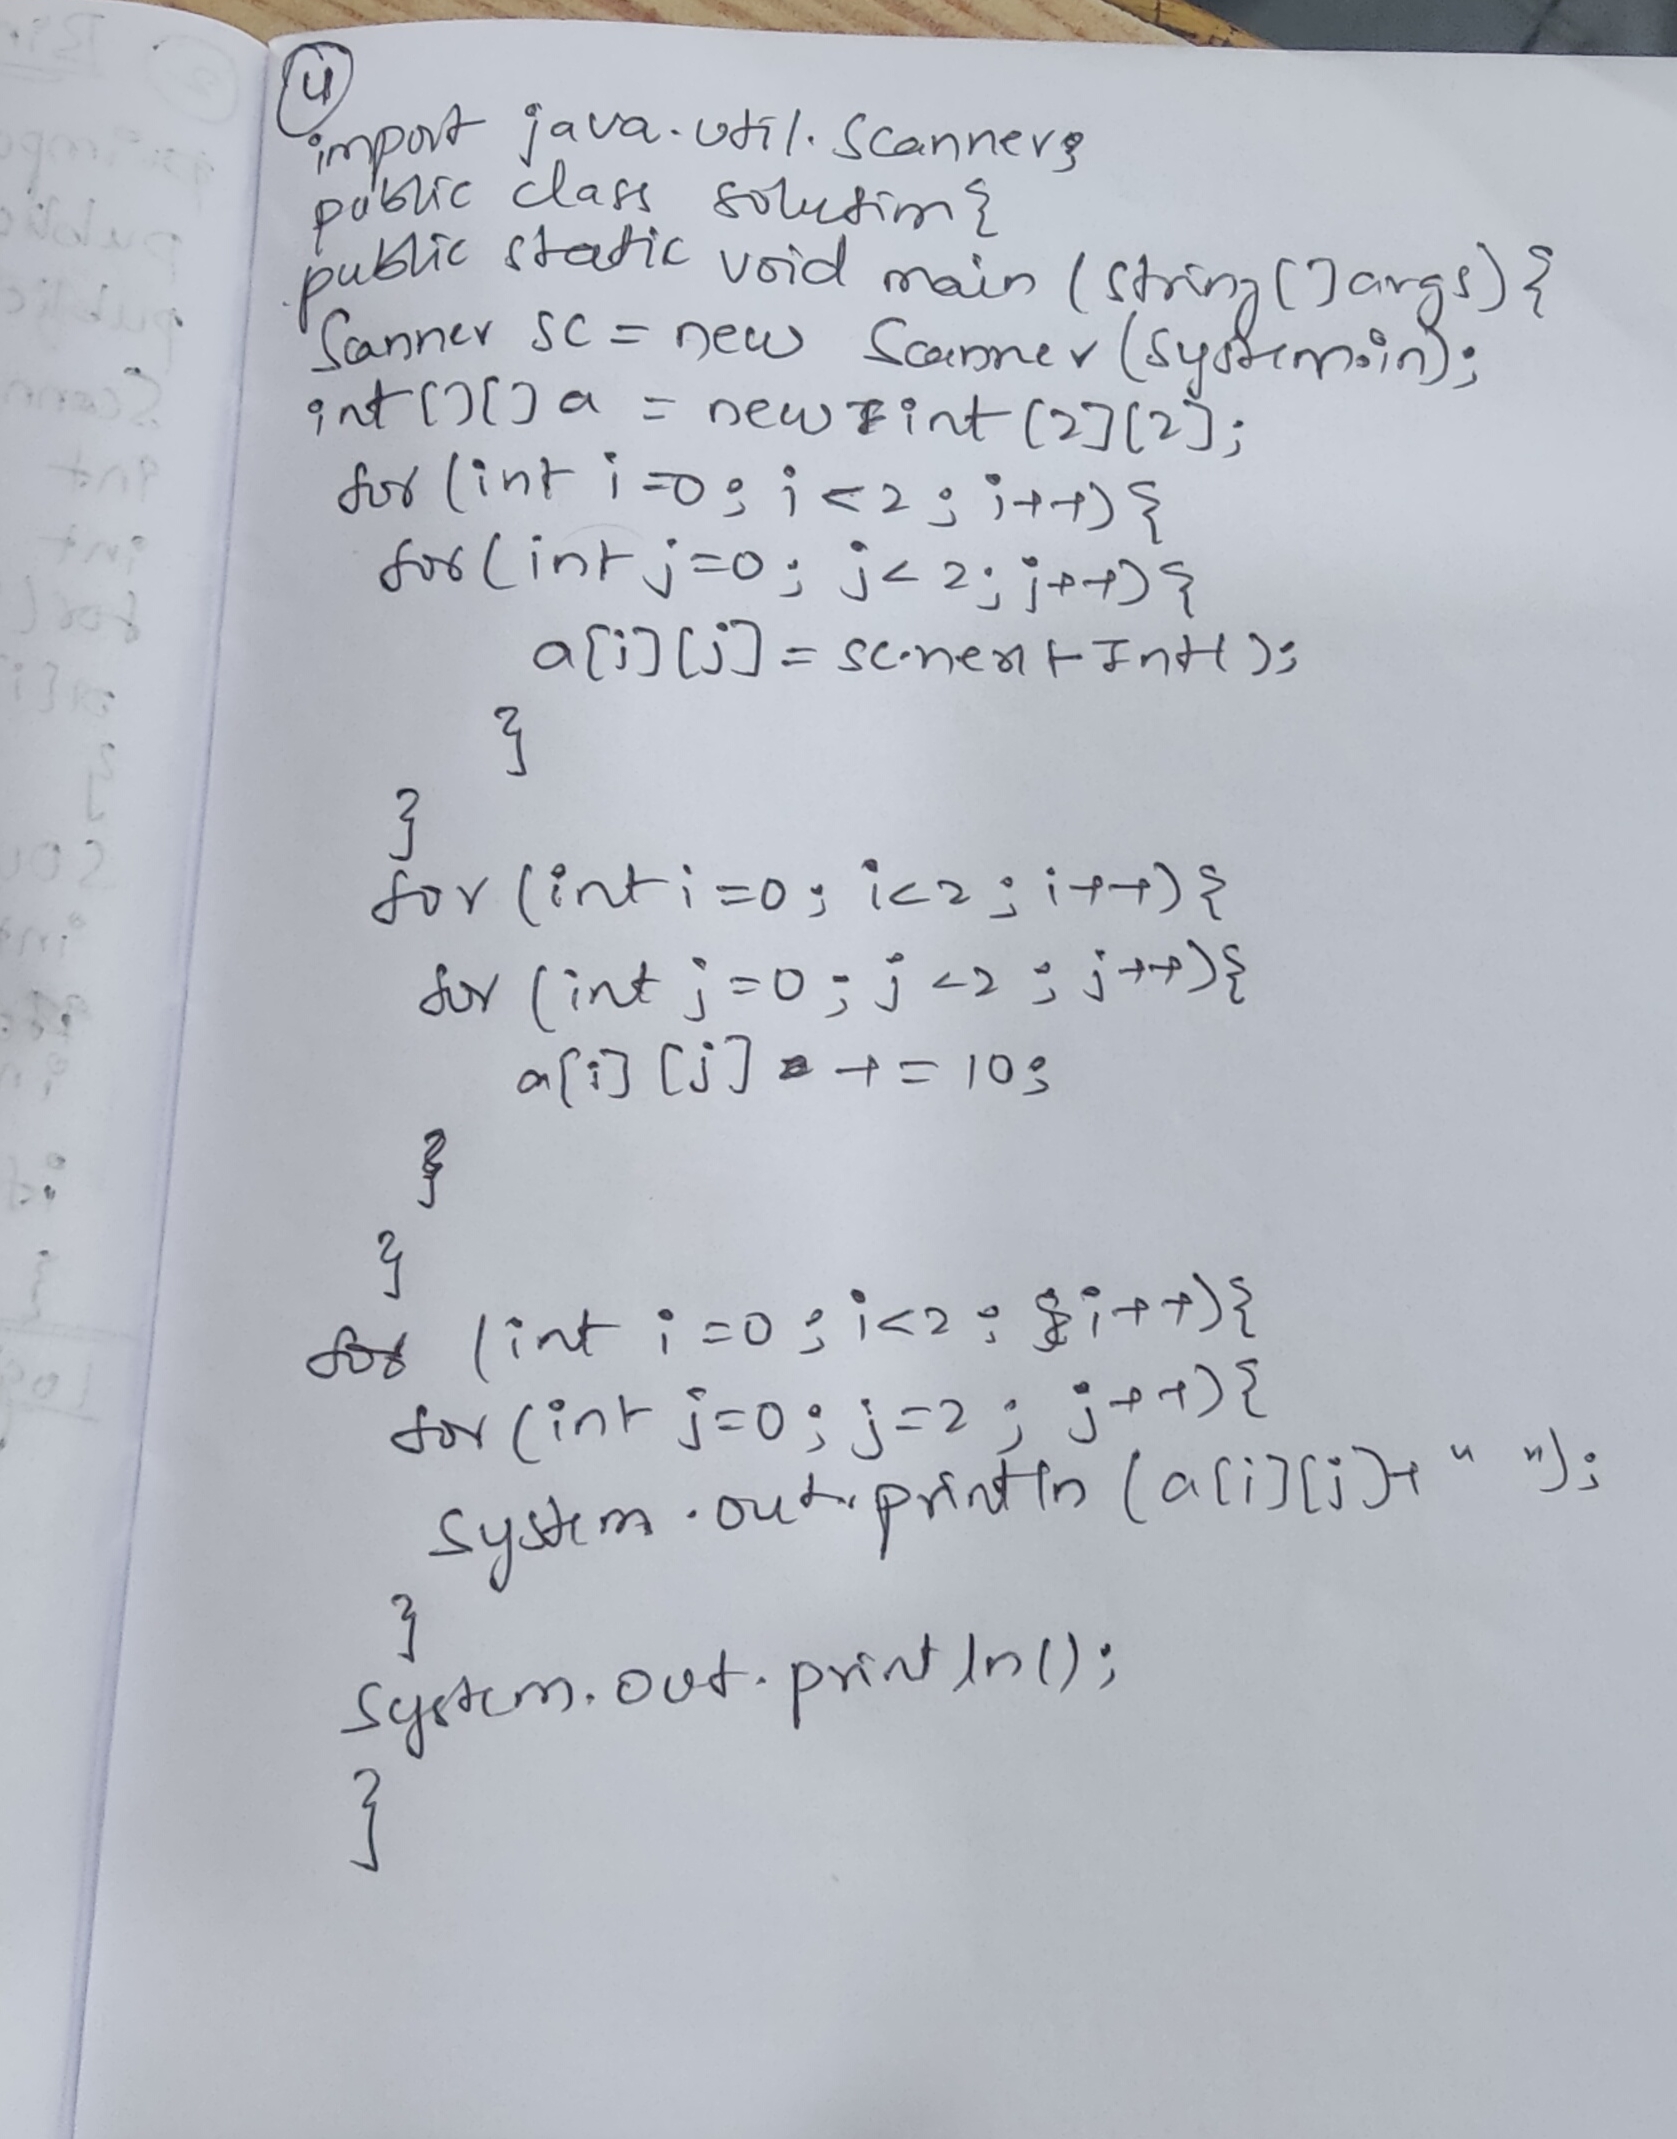 4
import java.util.Scanner;
public class solution{
public static void main (String[] args){
Scanner sc = new Scanner(System.in);
int[][] a = new int [2][2];
for (int i=0; i<2; i++){
for (int j=0; j<2; j++){
a[i][j] = sc.nextInt();
}
}
for (int i=0; i<2; i++){
for (int j=0; j<2; j++){
a[i][j] += 10;
}
}
for (int i=0; i<2; i++){
for (int j=0; j=2; j++){
System.out.println (a[i][j]+" ");
}
System.out.println();
}